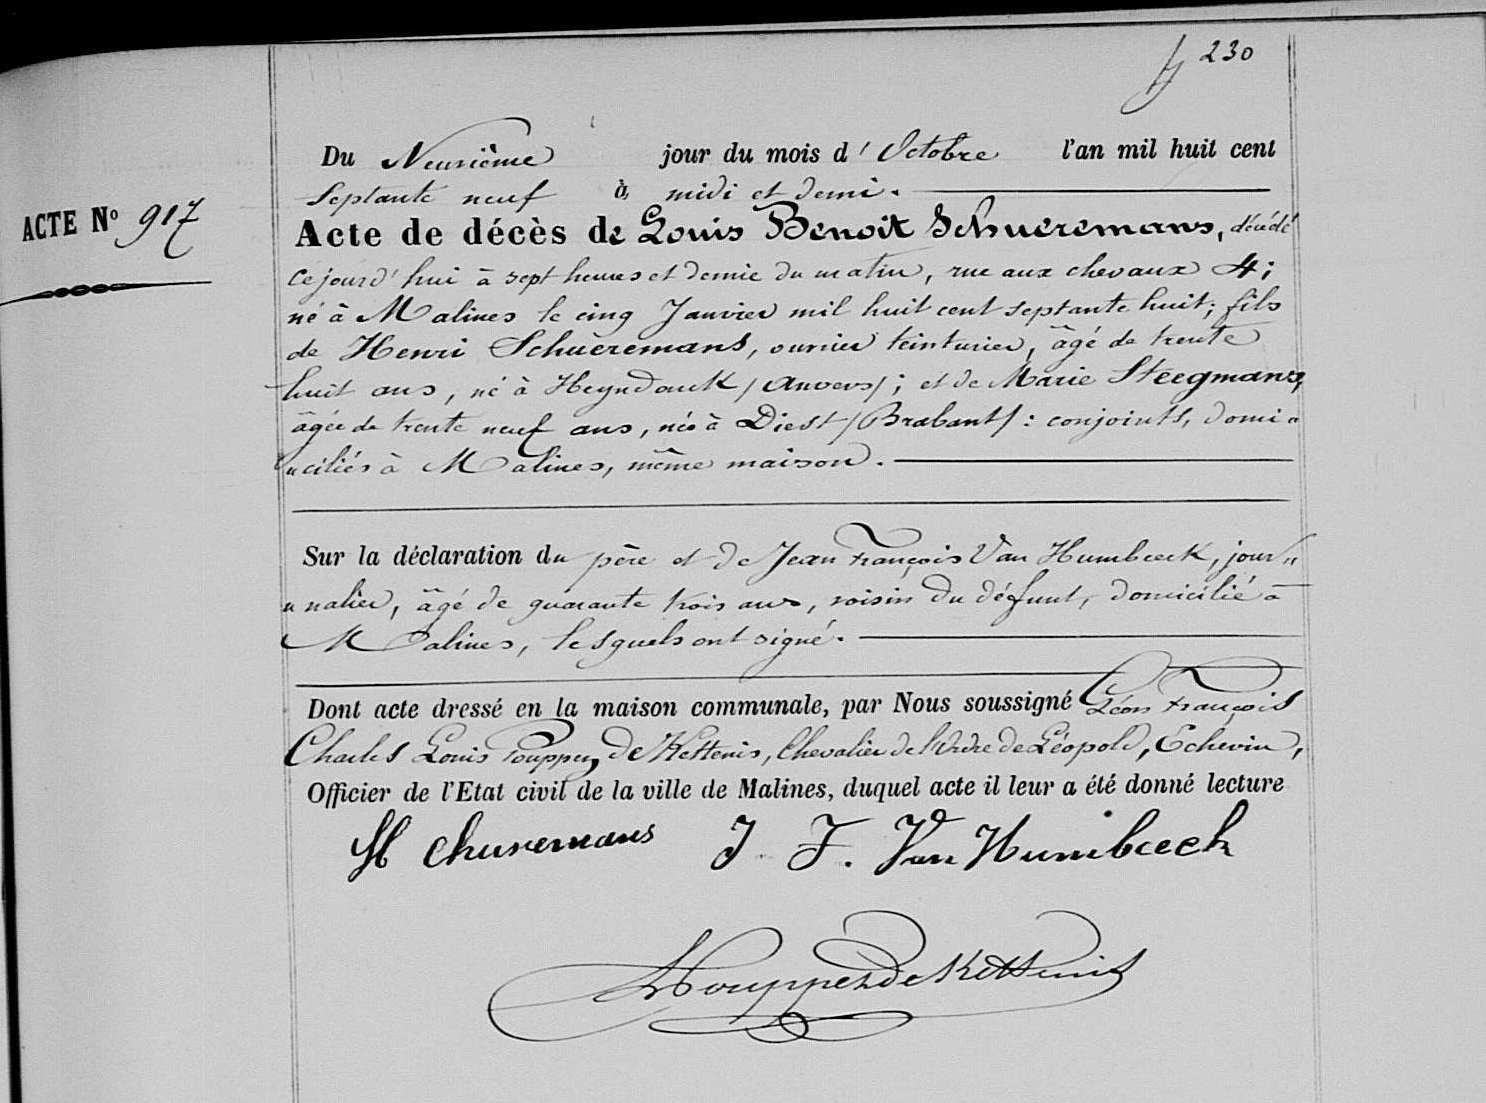 230
Du Neuvième jour du mois d' Octobre l'an mil huit cent
Septante neuf à midi et demi.
ACTE No 917
Acte de décès de Louis Benoit Schueremans, décédé
cejourd'hui à sept heures et demie du matin, rue aux chevaux 4;
né à Malines le cinq Janvier mil huit cent septante huit; fils
de Henri Schuèremans, ouvrier teinturier, âgé de trente
huit ans, né à Heyndonck /Anvers/; et de Marie Steegmans,
âgée de trente neuf ans, née à Diest /Brabant/: conjoints, domi=
=ciliés à Malines, même maison.
Sur la déclaration du père et de Jean François Van Humbeeck, jour=
=nalier, âgé de quarante trois ans, voisin du défunt, domicilié à
Malines, lesquels ont signé.
Dont acte dressé en la maison communale, par Nous soussigné Léon François
Charles Louis Pouppez de Kettenis, Chevalier de l'Ordre de Léopold, Echevin,
Officier de l'Etat civil de la ville de Malines, duquel acte il leur a été donné lecture
churemans J. F. Van Humbeeck
Pouppez de Kettenis